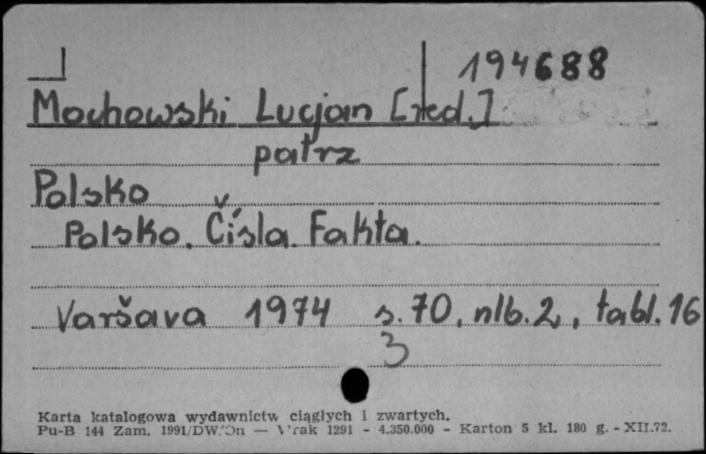 194688
Mochowski Lucjan [red.]
patrz
Polsko
Polsko. Čísla. Fakta.
Varšava 1974 s. 70, nlb. 2, tabl. 16
3
Karta katalogowa wydawnictw ciągłych i zwartych.
Pu-B 144 Zam. 1991/DW. — 1291 - 4.350.000 - Karton 5 kl. 180 g. - XII.72.